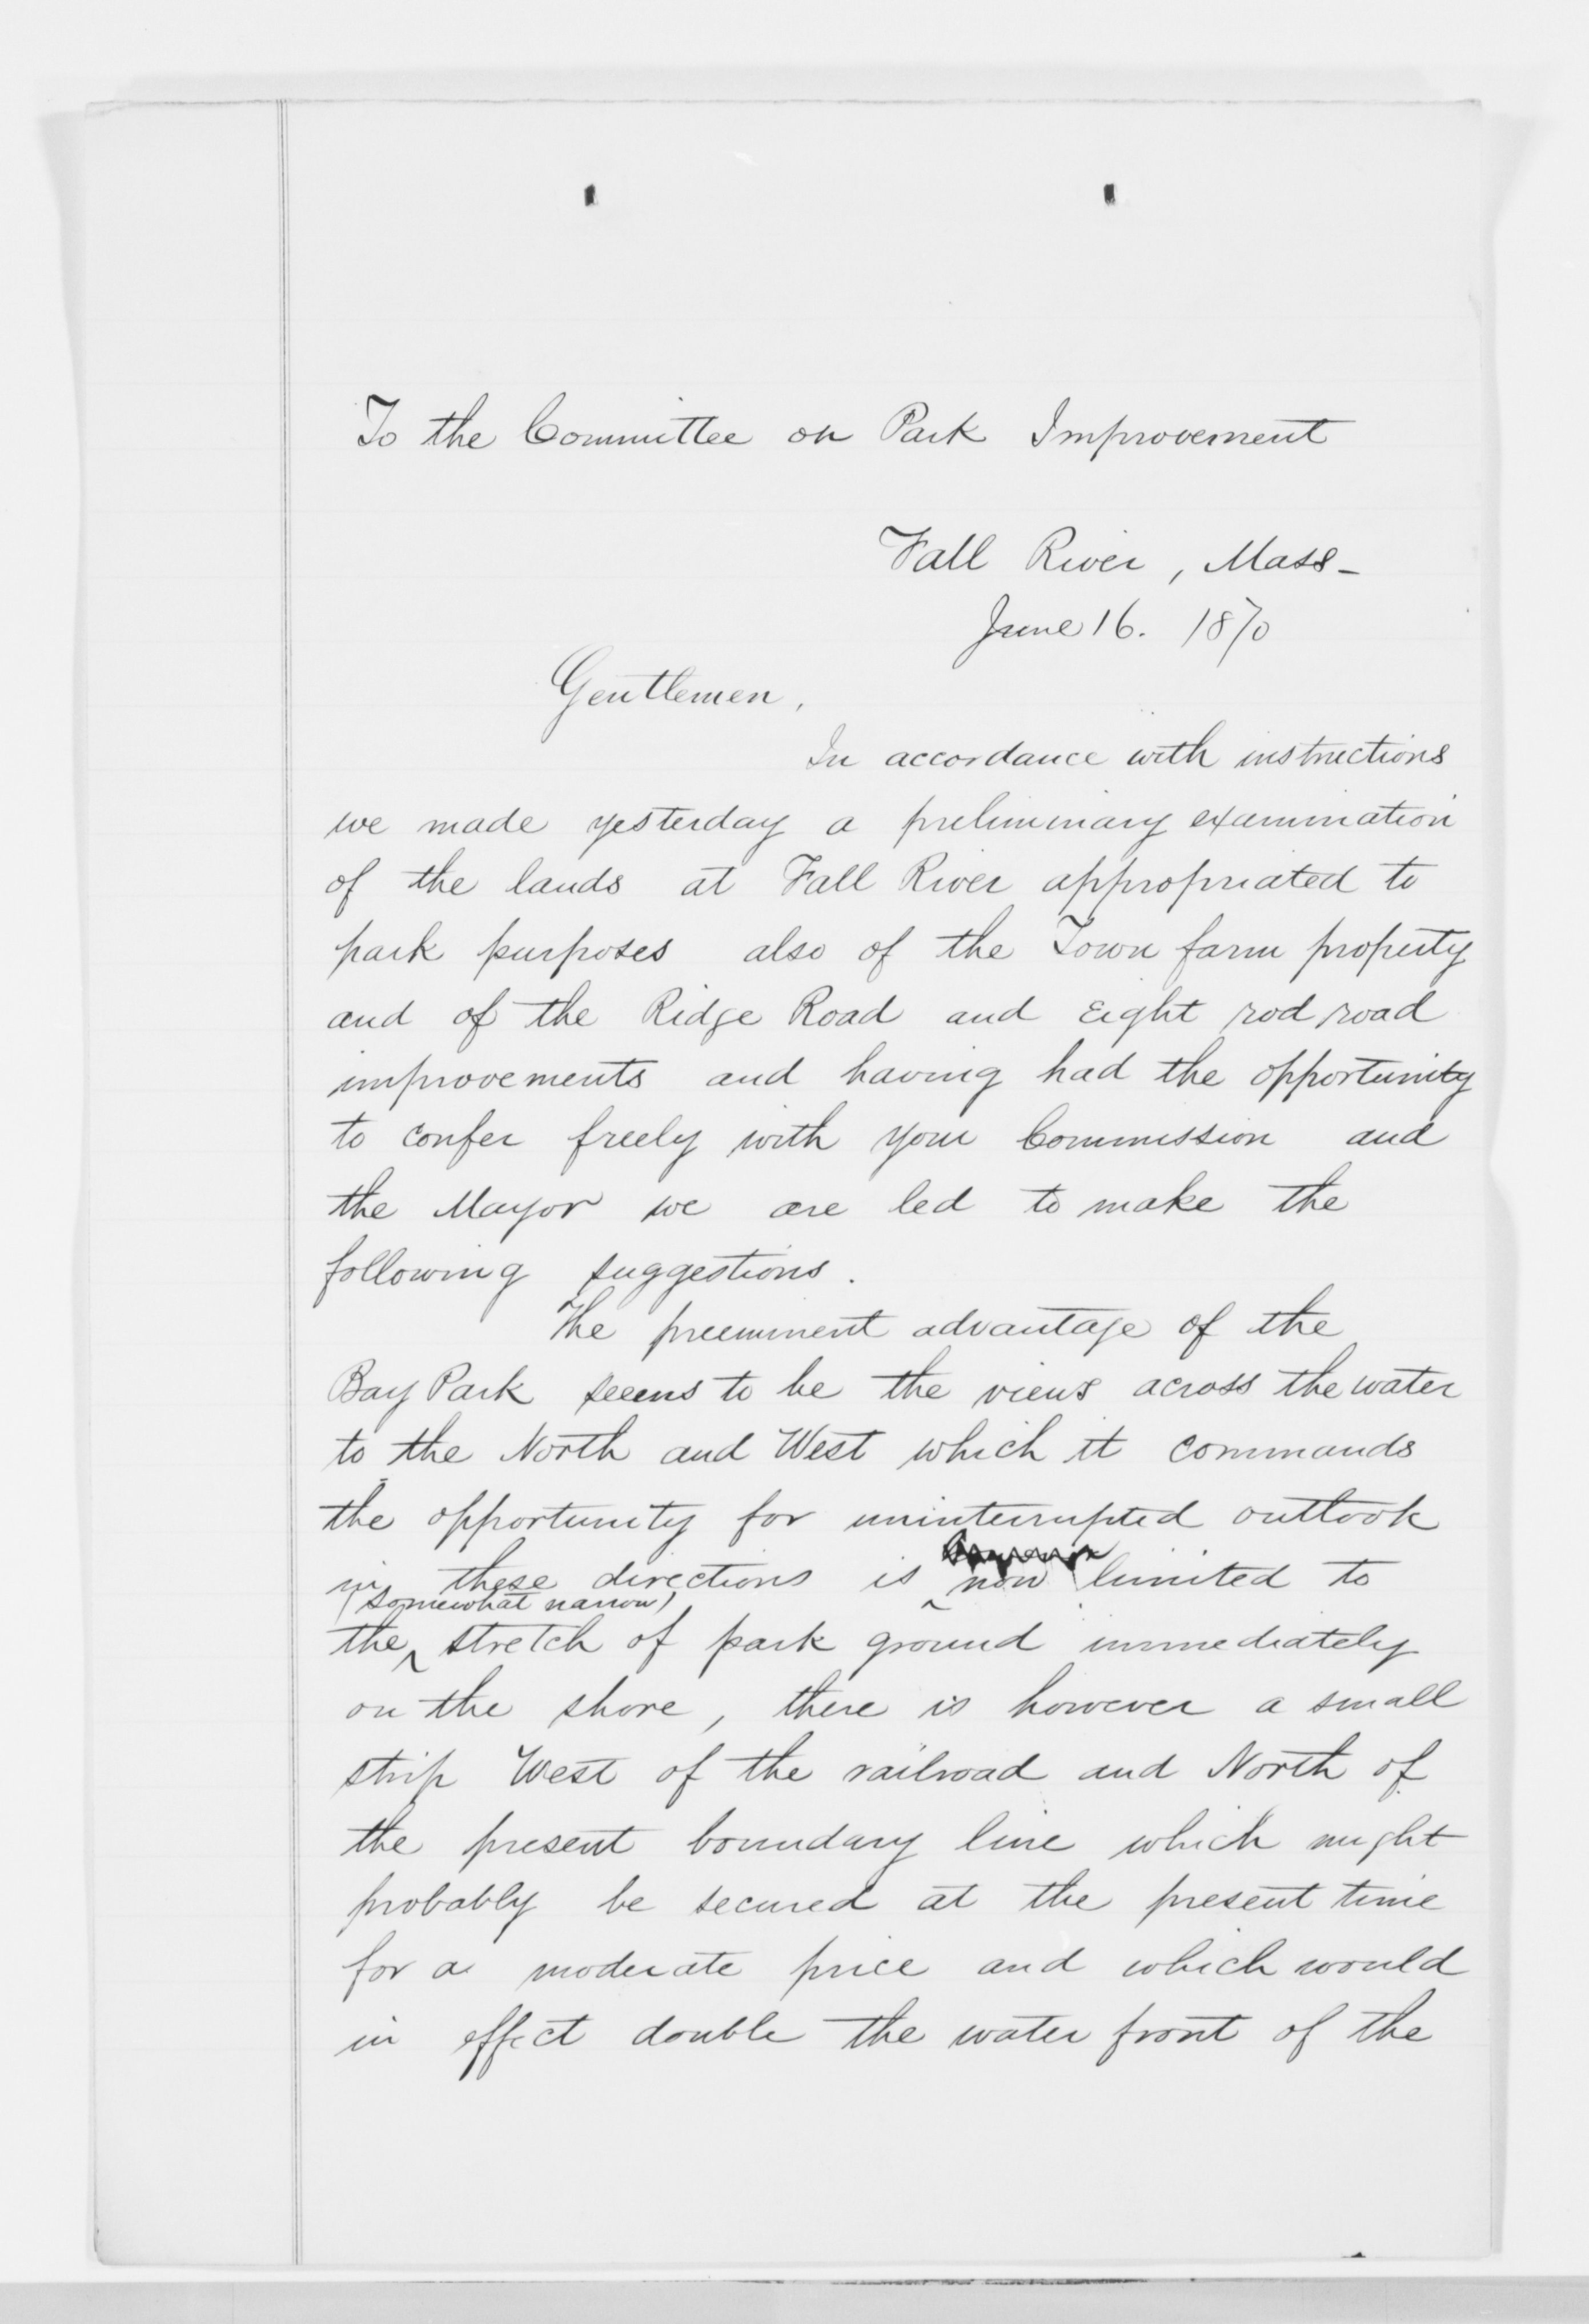 To the Committee on Park Improvement
Fall River, Mass-
June 16. 1870
Gentlemen,
In accordance with instructions
we made yesterday a preliminary examination
of the lands at Fall River appropriated to
park purposes also of the Town farm property
and of the Ridge Road and Eight rod road
improvements and having had the opportunity
to confer freely with your Commission and
the Mayor we are led to make the
following suggestions.
The preeminent advantage of the
Bay Park seems to be the views across the water
to the North and West which it commands
the opportunity for uninterrupted outlook
in these directions is now limited to
(somewhat narrow)
the stretch of park ground immediately
on the shore, there is however a small
strip West of the railroad and North of
the present boundary line which might
probably be secured at the present time
for a moderate price and which would
in effect double the water front of the